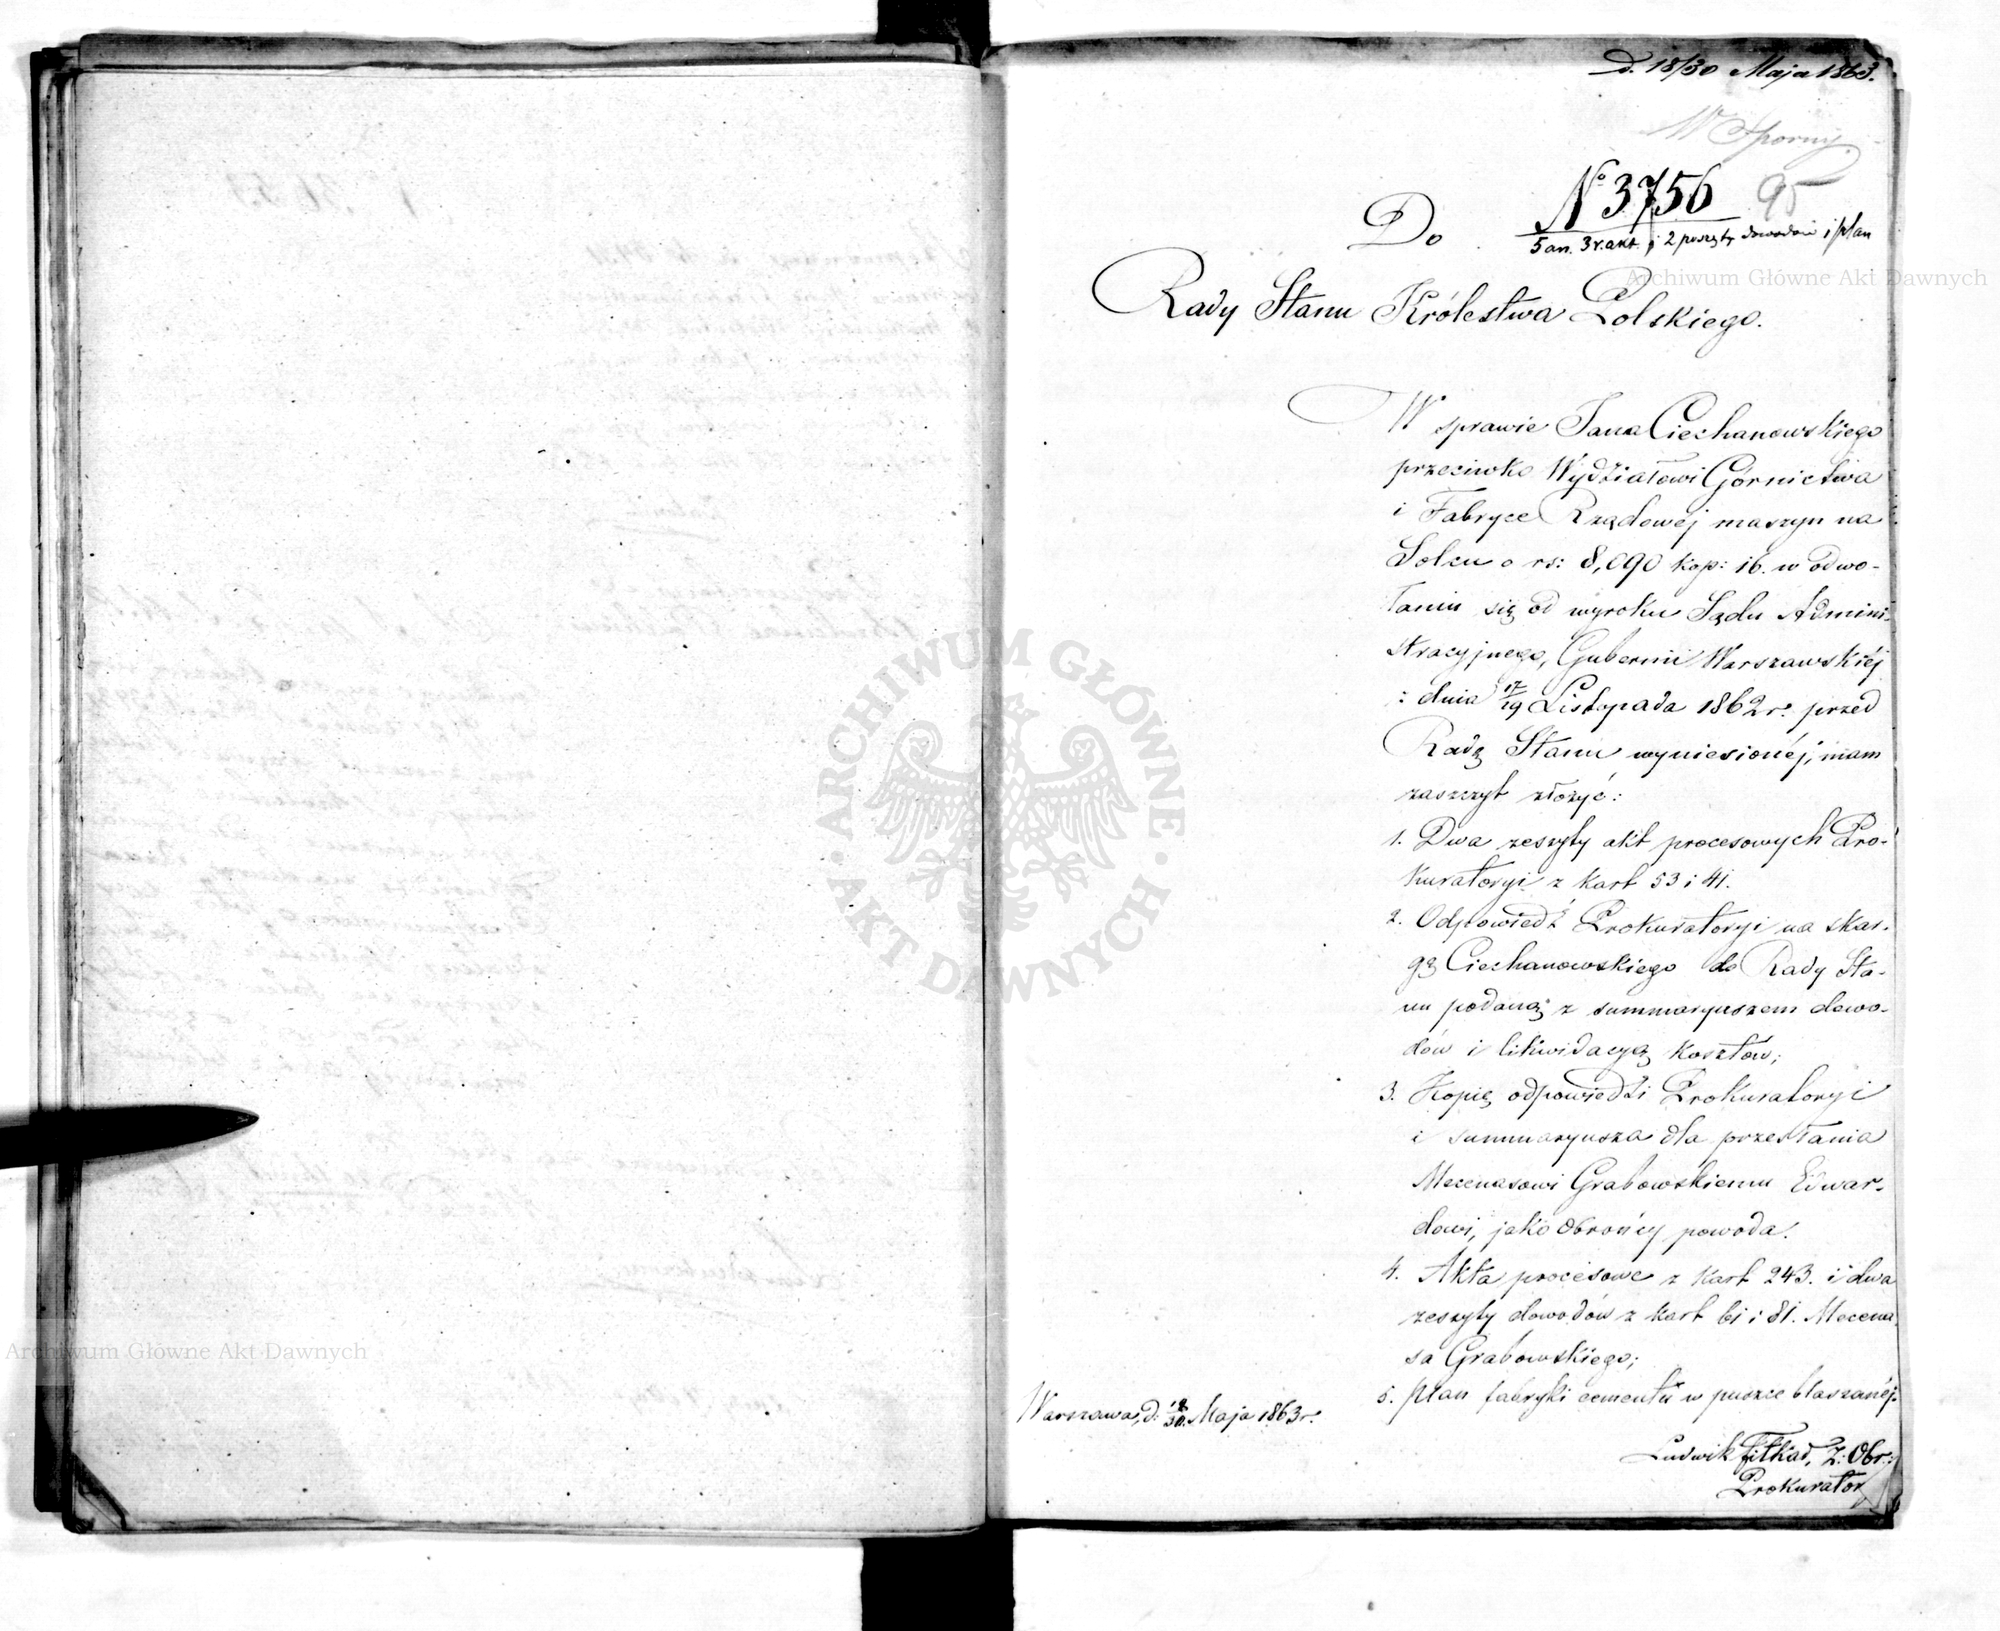 D. 18/30 Maja 1863.
W Sporny
Nº 3756 95
5 an. 3 v. akt. i 2 poszyty dowodów i plan
Do
Rady Stanu Królestwa Polskiego.
W sprawie Jana Ciechanowskiego
przeciwko Wydziałowi Górnictwa
i Fabryce Rządowéj maszyn na
Solcu o rs: 8,090 kop: 16. w odwo-
łaniu się od wyroku Sądu Admini-
stracyjnego, Gubernii Warszawskiéj
z dnia 17/29 Listopada 1862 r. przed
Radę Stanu wyniesionéj, mam
zaszczyt złożyć:
1. Dwa zeszyty akt procesowych Pro-
kuratoryi z kart 53 i 41.
2. Odpowiedź Prokuratoryi na skar-
gę Ciechanowskiego do Rady Sta-
nu podaną z summaryuszem dowo-
dów i likwidacyą kosztów;
3. Kopię odpowiedzi Prokuratoryi
i summaryusza dla przesłania
Mecenasowi Grabowskiemu Edwar-
dowi, jako obrońcy powoda.
4. Akta procesowe z kart 243. i dwa
zeszyty dowodów z kart 61 i 81. Mecena-
sa Grabowskiego;
5. plan fabryki cementu w puszce blaszanéj.
Warszawa, d. 18/30 Maja 1863 r.
Ludwik Z: Obr:
Prokurator
Archiwum Główne Akt Dawnych
Archiwum Główne Akt Dawnych
ARCHIWUM GŁÓWNE
AKT DAWNYCH